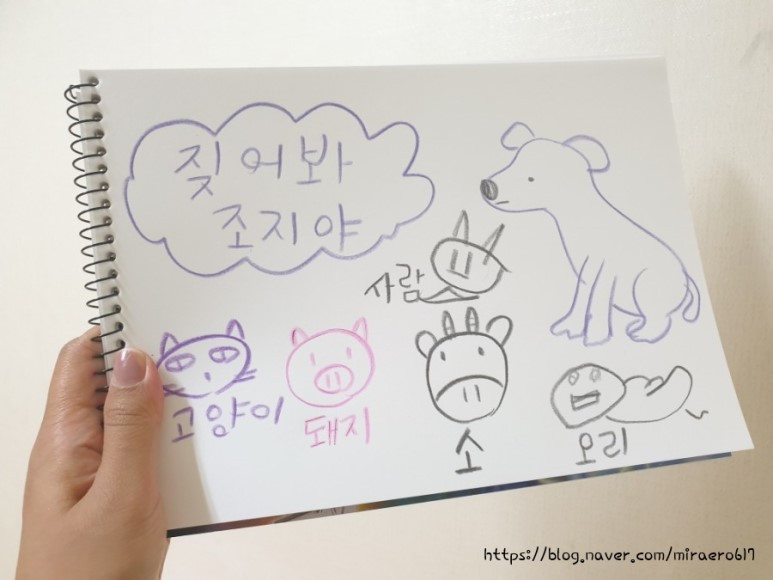 짖어봐
조지야
사람
고양이
돼지
소
오리
https://blog.naver.com/miraero617